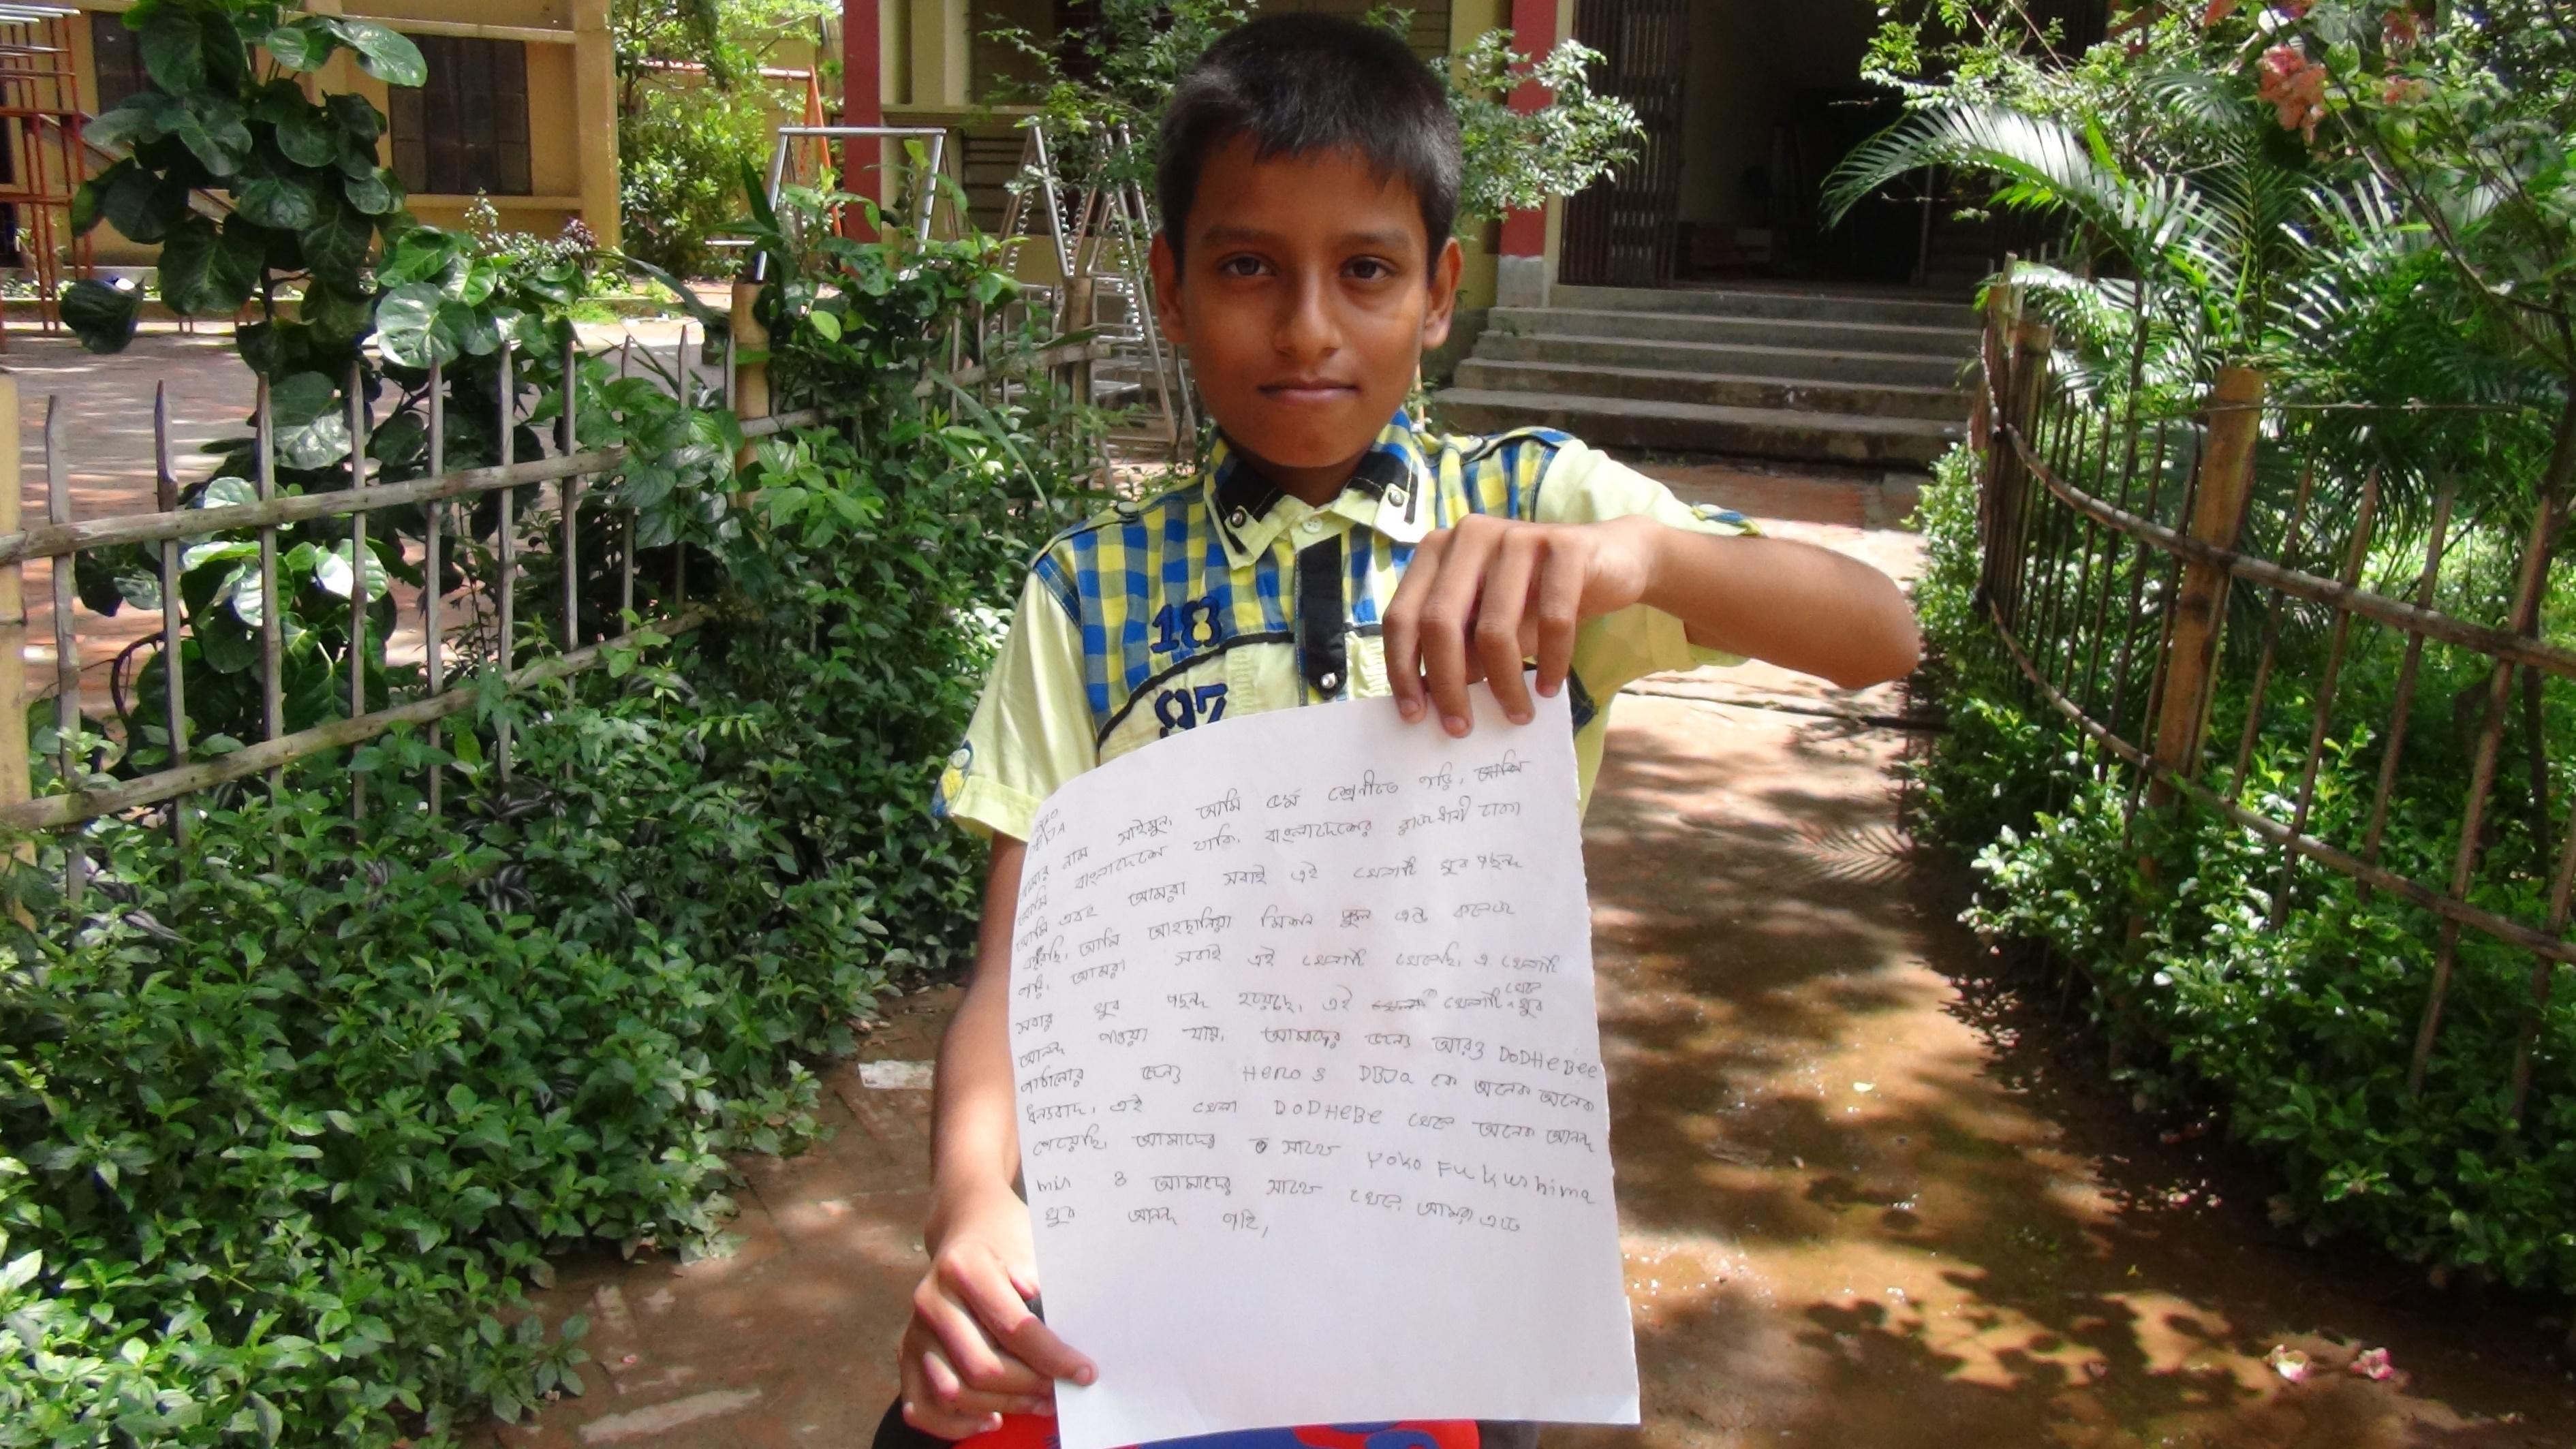 18
97
নাম সাইমুন, আমি ৫ম শ্রেনীতে পড়ি, আমি
আমি বাংলাদেশে থাকি, বাংলাদেশের রাজধানী ঢাকা
আমি এবং আমরা সবাই এই খেলাটি খুব পছন্দ
করেছি, আমি আহছানিয়া মিশন স্কুল এন্ড কলেজে
পড়ি, আমরা সবাই এই খেলাটি খেলেছি, এ খেলাটি
সবার খুব পছন্দ হয়েছে, এই খেলাটি থেকে খুব
আনন্দ পাওয়া যায়, আমাদের জন্যে আরও DODHeBee
পাঠানোর জন্যে Hero s DBJa কে অনেক অনেক
ধন্যবাদ, এই খেলা DODHeBe থেকে অনেক আনন্দ
পেয়েছি, আমাদের সাথে Yoko Fukushima
mis ও আমাদের সাথে খেলে, আমরা এতে
খুব আনন্দ পাই,